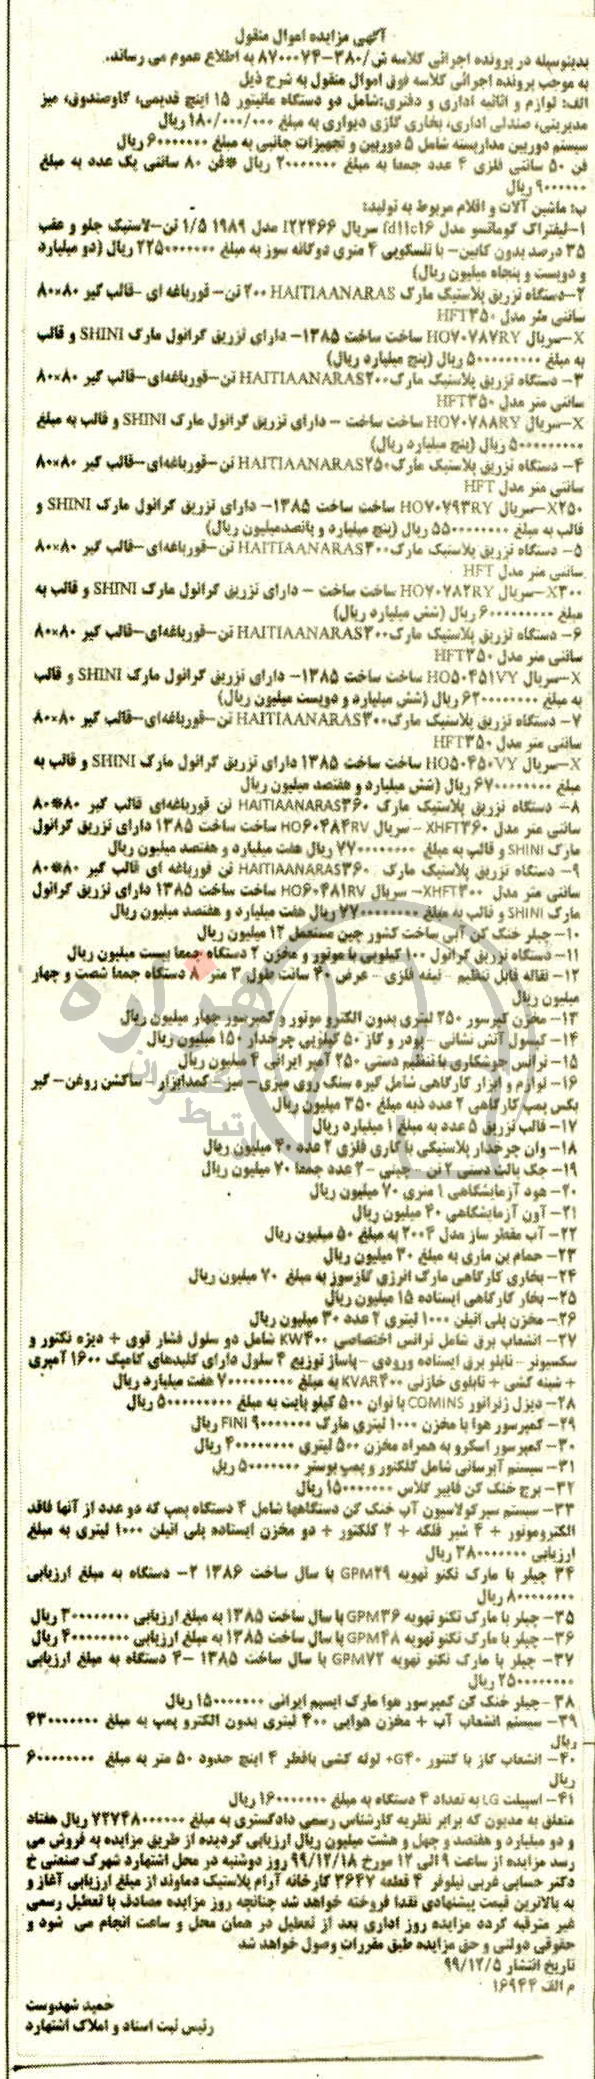 آگهی مزایده اموال منقول
بدینوسیله در پرونده اجرائی کلاسه ش/۳۸۰-۸۷۰۰۰۷۴ به اطلاع عموم می رساند.
به موجب پرونده اجرائی کلاسه فوق اموال منقول به شرح ذیل
الف: لوازم و اثاثیه اداری و دفتری:شامل دو دستگاه مانیتور ۱۵ اینچ قدیمی، گاوصندوق، میز
مدیریتی، صندلی اداری، بخاری گازی دیواری به مبلغ ۱۸۰/۰۰۰/۰۰۰ ریال
سیستم دوربین مداربسته شامل ۵ دوربین و تجهیزات جانبی به مبلغ ۶۰۰۰۰۰۰۰ ریال
فن ۵۰ سانتی فلزی ۴ عدد جمعا به مبلغ ۲۰۰۰۰۰۰۰ ریال *فن ۸۰ سانتی یک عدد به مبلغ
۹۰۰۰۰۰۰ ریال
ب: ماشین آلات و اقلام مربوط به تولید:
۱-لیفتراک کوماتسو مدل fd11c16 سریال ۱۲۲۴۶۶ مدل ۱۹۸۹ ۱/۵ تن-لاستیک جلو و عقب
۳۵ درصد بدون کابین- با تلسکوپی ۴ متری دوگانه سوز به مبلغ ۲۲۵۰۰۰۰۰۰۰ ریال (دو میلیارد
و دویست و پنجاه میلیون ریال)
۲-دستگاه تزریق پلاستیک مارک HAITIAANARAS ۲۰۰ تن- قورباغه ای -قالب گیر ۸۰×۸۰
سانتی متر مدل HFT۲۵۰
X-سریال HO۷۰۷۸۷RY ساخت ساخت ۱۳۸۵- دارای تزریق گرانول مارک SHINI و قالب
به مبلغ ۵۰۰۰۰۰۰۰۰۰ ریال (پنج میلیارد ریال)
۳- دستگاه تزریق پلاستیک مارک HAITIAANARAS۲۰۰ تن-قورباغه‌ای-قالب گیر ۸۰×۸۰
سانتی متر مدل HFT۲۵۰
X-سریال HO۷۰۷۸۸RY ساخت ساخت - دارای تزریق گرانول مارک SHINI و قالب به مبلغ
۵۰۰۰۰۰۰۰۰۰ ریال (پنج میلیارد ریال)
۴- دستگاه تزریق پلاستیک مارک HAITIAANARAS۲۵۰ تن-قورباغه‌ای-قالب گیر ۸۰×۸۰
سانتی متر مدل HFT
X۲۵۰-سریال HO۷۰۷۹۳RY ساخت ساخت ۱۳۸۵- دارای تزریق گرانول مارک SHINI و
قالب به مبلغ ۵۵۰۰۰۰۰۰۰۰ ریال (پنج میلیارد و پانصدمیلیون ریال)
۵- دستگاه تزریق پلاستیک مارک HAITIAANARAS۳۰۰ تن-قورباغه‌ای-قالب گیر ۸۰×۸۰
سانتی متر مدل HFT
X۳۰۰-سریال HO۷۰۷۸۲RY ساخت ساخت - دارای تزریق گرانول مارک SHINI و قالب به
مبلغ ۶۰۰۰۰۰۰۰۰۰ ریال (شش میلیارد ریال)
۶- دستگاه تزریق پلاستیک مارک HAITIAANARAS۳۰۰ تن-قورباغه‌ای-قالب گیر ۸۰×۸۰
سانتی متر مدل HFT۲۵۰
X-سریال HO۵۰۴۵۱VY ساخت ساخت ۱۳۸۵- دارای تزریق گرانول مارک SHINI و قالب
به مبلغ ۶۲۰۰۰۰۰۰۰۰ ریال (شش میلیارد و دویست میلیون ریال)
۷- دستگاه تزریق پلاستیک مارک HAITIAANARAS۳۰۰ تن-قورباغه‌ای-قالب گیر ۸۰×۸۰
سانتی متر مدل HFT۲۵۰
X-سریال HO۵۰۴۵۰VY ساخت ساخت ۱۳۸۵ دارای تزریق گرانول مارک SHINI و قالب به
مبلغ ۶۷۰۰۰۰۰۰۰۰ ریال (شش میلیارد و هفتصد میلیون ریال
۸- دستگاه تزریق پلاستیک مارک HAITIAANARAS۳۶۰ تن قورباغه‌ای قالب گیر ۸۰*۸۰
سانتی متر مدل XHFT۳۶۰ - سریال HO۶۰۴۸۴RV ساخت ساخت ۱۳۸۵ دارای تزریق گرانول
مارک SHINI و قالب به مبلغ ۷۷۰۰۰۰۰۰۰۰ ریال هفت میلیارد و هفتصد میلیون ریال
۹- دستگاه تزریق پلاستیک مارک HAITIAANARAS۳۶۰ تن قورباغه ای قالب گیر ۸۰*۸۰
سانتی متر مدل XHFT۳۰۰- سریال HO۶۰۴۸۱RV ساخت ساخت ۱۳۸۵ دارای تزریق گرانول
مارک SHINI و قالب به مبلغ ۷۷۰۰۰۰۰۰۰۰ ریال هفت میلیارد و هفتصد میلیون ریال
۱۰- چیلر خنک کن آبی ساخت کشور چین مستعمل ۱۲ میلیون ریال
۱۱- دستگاه تزریق گرانول ۱۰۰ کیلویی با موتور و مخزن ۲ دستگاه جمعا بیست میلیون ریال
۱۲- نقاله قابل تنظیم - تیغه فلزی - عرض ۴۰ سانت طول ۳ متر ۸ دستگاه جمعا شصت و چهار
میلیون ریال
۱۳- مخزن کپرسور ۲۵۰ لیتری بدون الکترو موتور و کمپرسور چهار میلیون ریال
۱۴- کپسول آتش نشانی - پودر و گاز ۵۰ کیلویی چرخدار ۱۵۰ میلیون ریال
۱۵- ترانس جوشکاری با تنظیم دستی ۲۵۰ آمپر ایرانی ۴ میلیون ریال
۱۶- لوازم و ابزار کارگاهی شامل گیره سنگ روی میزی- میز- کمدابزار - ساکشن روغن- گیر
بکس پمپ کارگاهی ۲ عدد ذبه مبلغ ۳۵۰ میلیون ریال
۱۷- قالب تزریق ۵ عدد به مبلغ ۱ میلیارد ریال
۱۸- وان چرخدار پلاستیکی با گاری فلزی ۲ عدد ۲۰ میلیون ریال
۱۹- جک پالت دستی ۲ تن - چینی -۲ عدد جمعا ۷۰ میلیون ریال
۲۰- هود آزمایشگاهی ۱ متری ۷۰ میلیون ریال
۲۱- آون آزمایشگاهی ۴۰ میلیون ریال
۲۲- آب مقطر ساز مدل ۲۰۰۴ به مبلغ ۵۰ میلیون ریال
۲۳- حمام بن ماری به مبلغ ۳۰ میلیون ریال
۲۴- بخاری کارگاهی مارک انرژی گازسوز به مبلغ ۷۰ میلیون ریال
۲۵- بخار کارگاهی ایستاده ۱۵ میلیون ریال
۲۶- مخزن پلی اتیلن ۱۰۰۰ لیتری ۲ عدد ۳۰ میلیون ریال
۲۷- انشعاب برق شامل ترانس اختصاصی KW۴۰۰ شامل دو سلول فشار قوی + دیژه نکتور و
سکسیونر - تابلو برق ایستاده ورودی -پاساژ توزیع ۴ سلول دارای کلیدهای کامپک ۱۶۰۰ آمپری
+ شینه کشی + تابلوی خازنی KVAR۴۰۰ به مبلغ ۷۰۰۰۰۰۰۰۰۰ هفت میلیارد ریال
۲۸- دیزل ژنراتور COMINS با توان ۵۰۰ کیلو پایت به مبلغ ۵۰۰۰۰۰۰۰۰۰ ریال
۲۹- کمپرسور هوا با مخزن ۱۰۰۰ لیتری مارک FINI ۹۰۰۰۰۰۰۰ ریال
۳۰- کمپرسور اسکرو به همراه مخزن ۵۰۰ لیتری ۴۰۰۰۰۰۰۰۰ ریال
۳۱- سیستم آبرسانی شامل کلکتور و پمپ بوستر ۵۰۰۰۰۰۰۰ ریل
۳۲- برج خنک کن فایبر گلاس ۱۵۰۰۰۰۰۰۰ ریال
۳۳- سیستم سیرکولاسیون آب خنک کن دستگاهها شامل ۴ دستگاه پمپ که دو عدد از آنها فاقد
الکتروموتور + ۴ شیر فلکه + ۲ کلکتور + دو مخزن ایستاده پلی اتیلن ۱۰۰۰ لیتری به مبلغ
ارزیابی ۳۸۰۰۰۰۰۰۰ ریال
۳۴ چیلر با مارک تکنو تهویه GPM۲۹ با سال ساخت ۱۳۸۶ ۲- دستگاه به مبلغ ارزیابی
۸۰۰۰۰۰۰۰۰ ریال
۳۵- چیلر با مارک تکنو تهویه GPM۳۶ با سال ساخت ۱۳۸۵ به مبلغ ارزیابی ۳۰۰۰۰۰۰۰۰ ریال
۳۶- چیلر با مارک تکنو تهویه GPM۴۸ با سال ساخت ۱۳۸۵ به مبلغ ارزیابی ۴۰۰۰۰۰۰۰۰ ریال
۳۷- چیلر با مارک تکنو تهویه GPM۷۲ با سال ساخت ۱۳۸۵ -۴ دستگاه به مبلغ ارزیابی
۲۵۰۰۰۰۰۰۰۰ ریال
۳۸ -چیلر خنک کن کمپرسور هوا مارک ایسیم ایرانی ۱۵۰۰۰۰۰۰۰ ریال
۳۹- سیستم انشعاب آب + مخزن هوایی ۴۰۰ لیتری بدون الکترو پمپ به مبلغ ۴۳۰۰۰۰۰۰۰
ریال
۴۰- انشعاب گاز با کنتور G۴۰+ لوله کشی باقطر ۴ اینچ حدود ۵۰ متر به مبلغ ۶۰۰۰۰۰۰۰۰
ریال
۴۱- اسپیلت LG به تعداد ۴ دستگاه به مبلغ ۱۶۰۰۰۰۰۰۰ ریال
متعلق به مدیون که برابر نظریه کارشناس رسمی دادگستری به مبلغ ۷۲۷۴۸۰۰۰۰۰۰ ریال هفتاد
و دو میلیارد و هفتصد و چهل و هشت میلیون ریال ارزیابی گردیده از طریق مزایده به فروش می
رسد مزایده از ساعت ۹ الی ۱۲ مورخ ۹۹/۱۲/۱۸ روز دوشنبه در محل اشتهارد شهرک صنعتی خ
دکتر حسابی غربی نیلوفر ۴ قطعه ۳۶۴۷ کارخانه آرام پلاستیک دماوند از مبلغ ارزیابی آغاز و
به بالاترین قیمت پیشنهادی نقدا فروخته خواهد شد چنانچه روز مزایده مصادف با تعطیل رسمی
غیر مترقبه گردد مزایده روز اداری بعد از تعطیل در همان محل و ساعت انجام می شود و
حقوقی دولتی و حق مزایده طبق مقررات وصول خواهد شد
تاریخ انتشار ۹۹/۱۲/۵
م الف ۱۶۹۴۴
حمید شهدوست
رئیس ثبت اسناد و املاک اشتهارد
هزاره
ارتباط